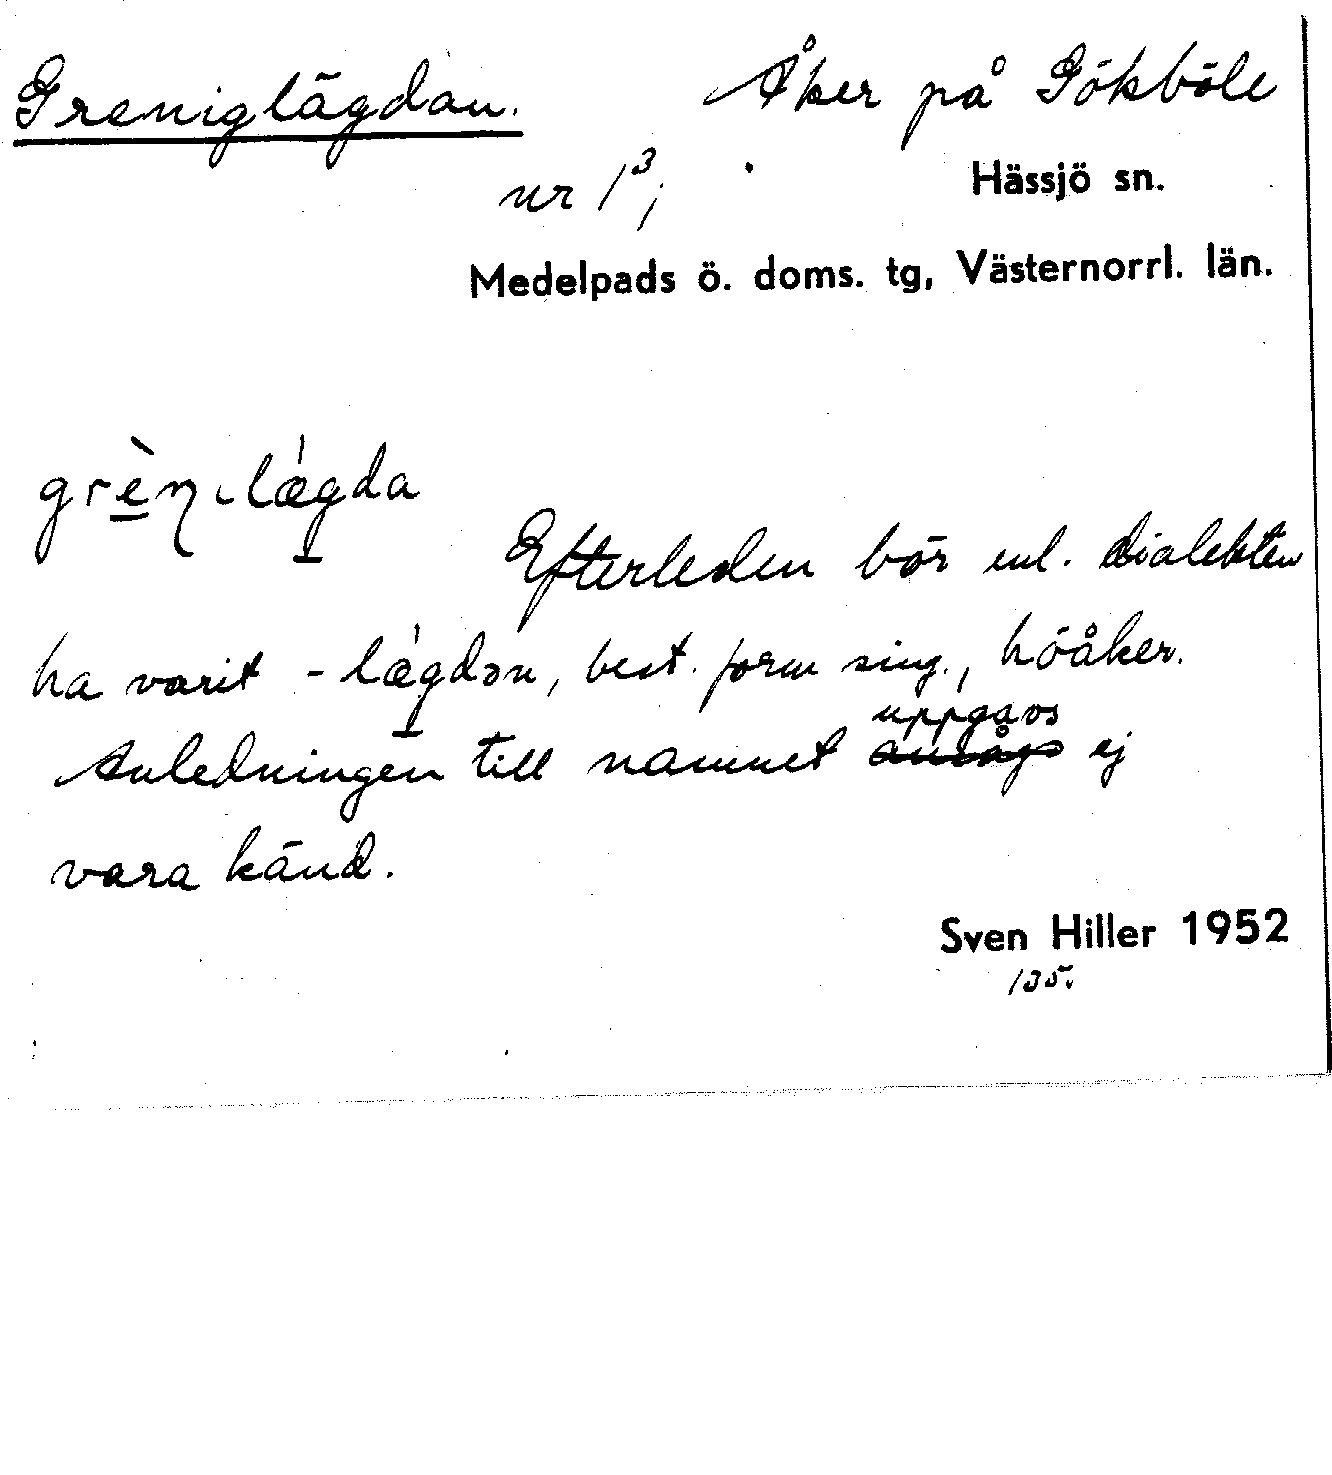 Greniglägdan. Åker på Gökböle
nr 1³;
Hässjö sn.
Medelpads ö. doms. tg, Västernorrl. län.
grèn-lǽgda
Efterleden bör enl. dialekten
ha varit -lǽgdən, best. form sing., höåker.
uppgavs
Anledningen till namnet ansågs ej
vara känd.
Sven Hiller 1952
135.